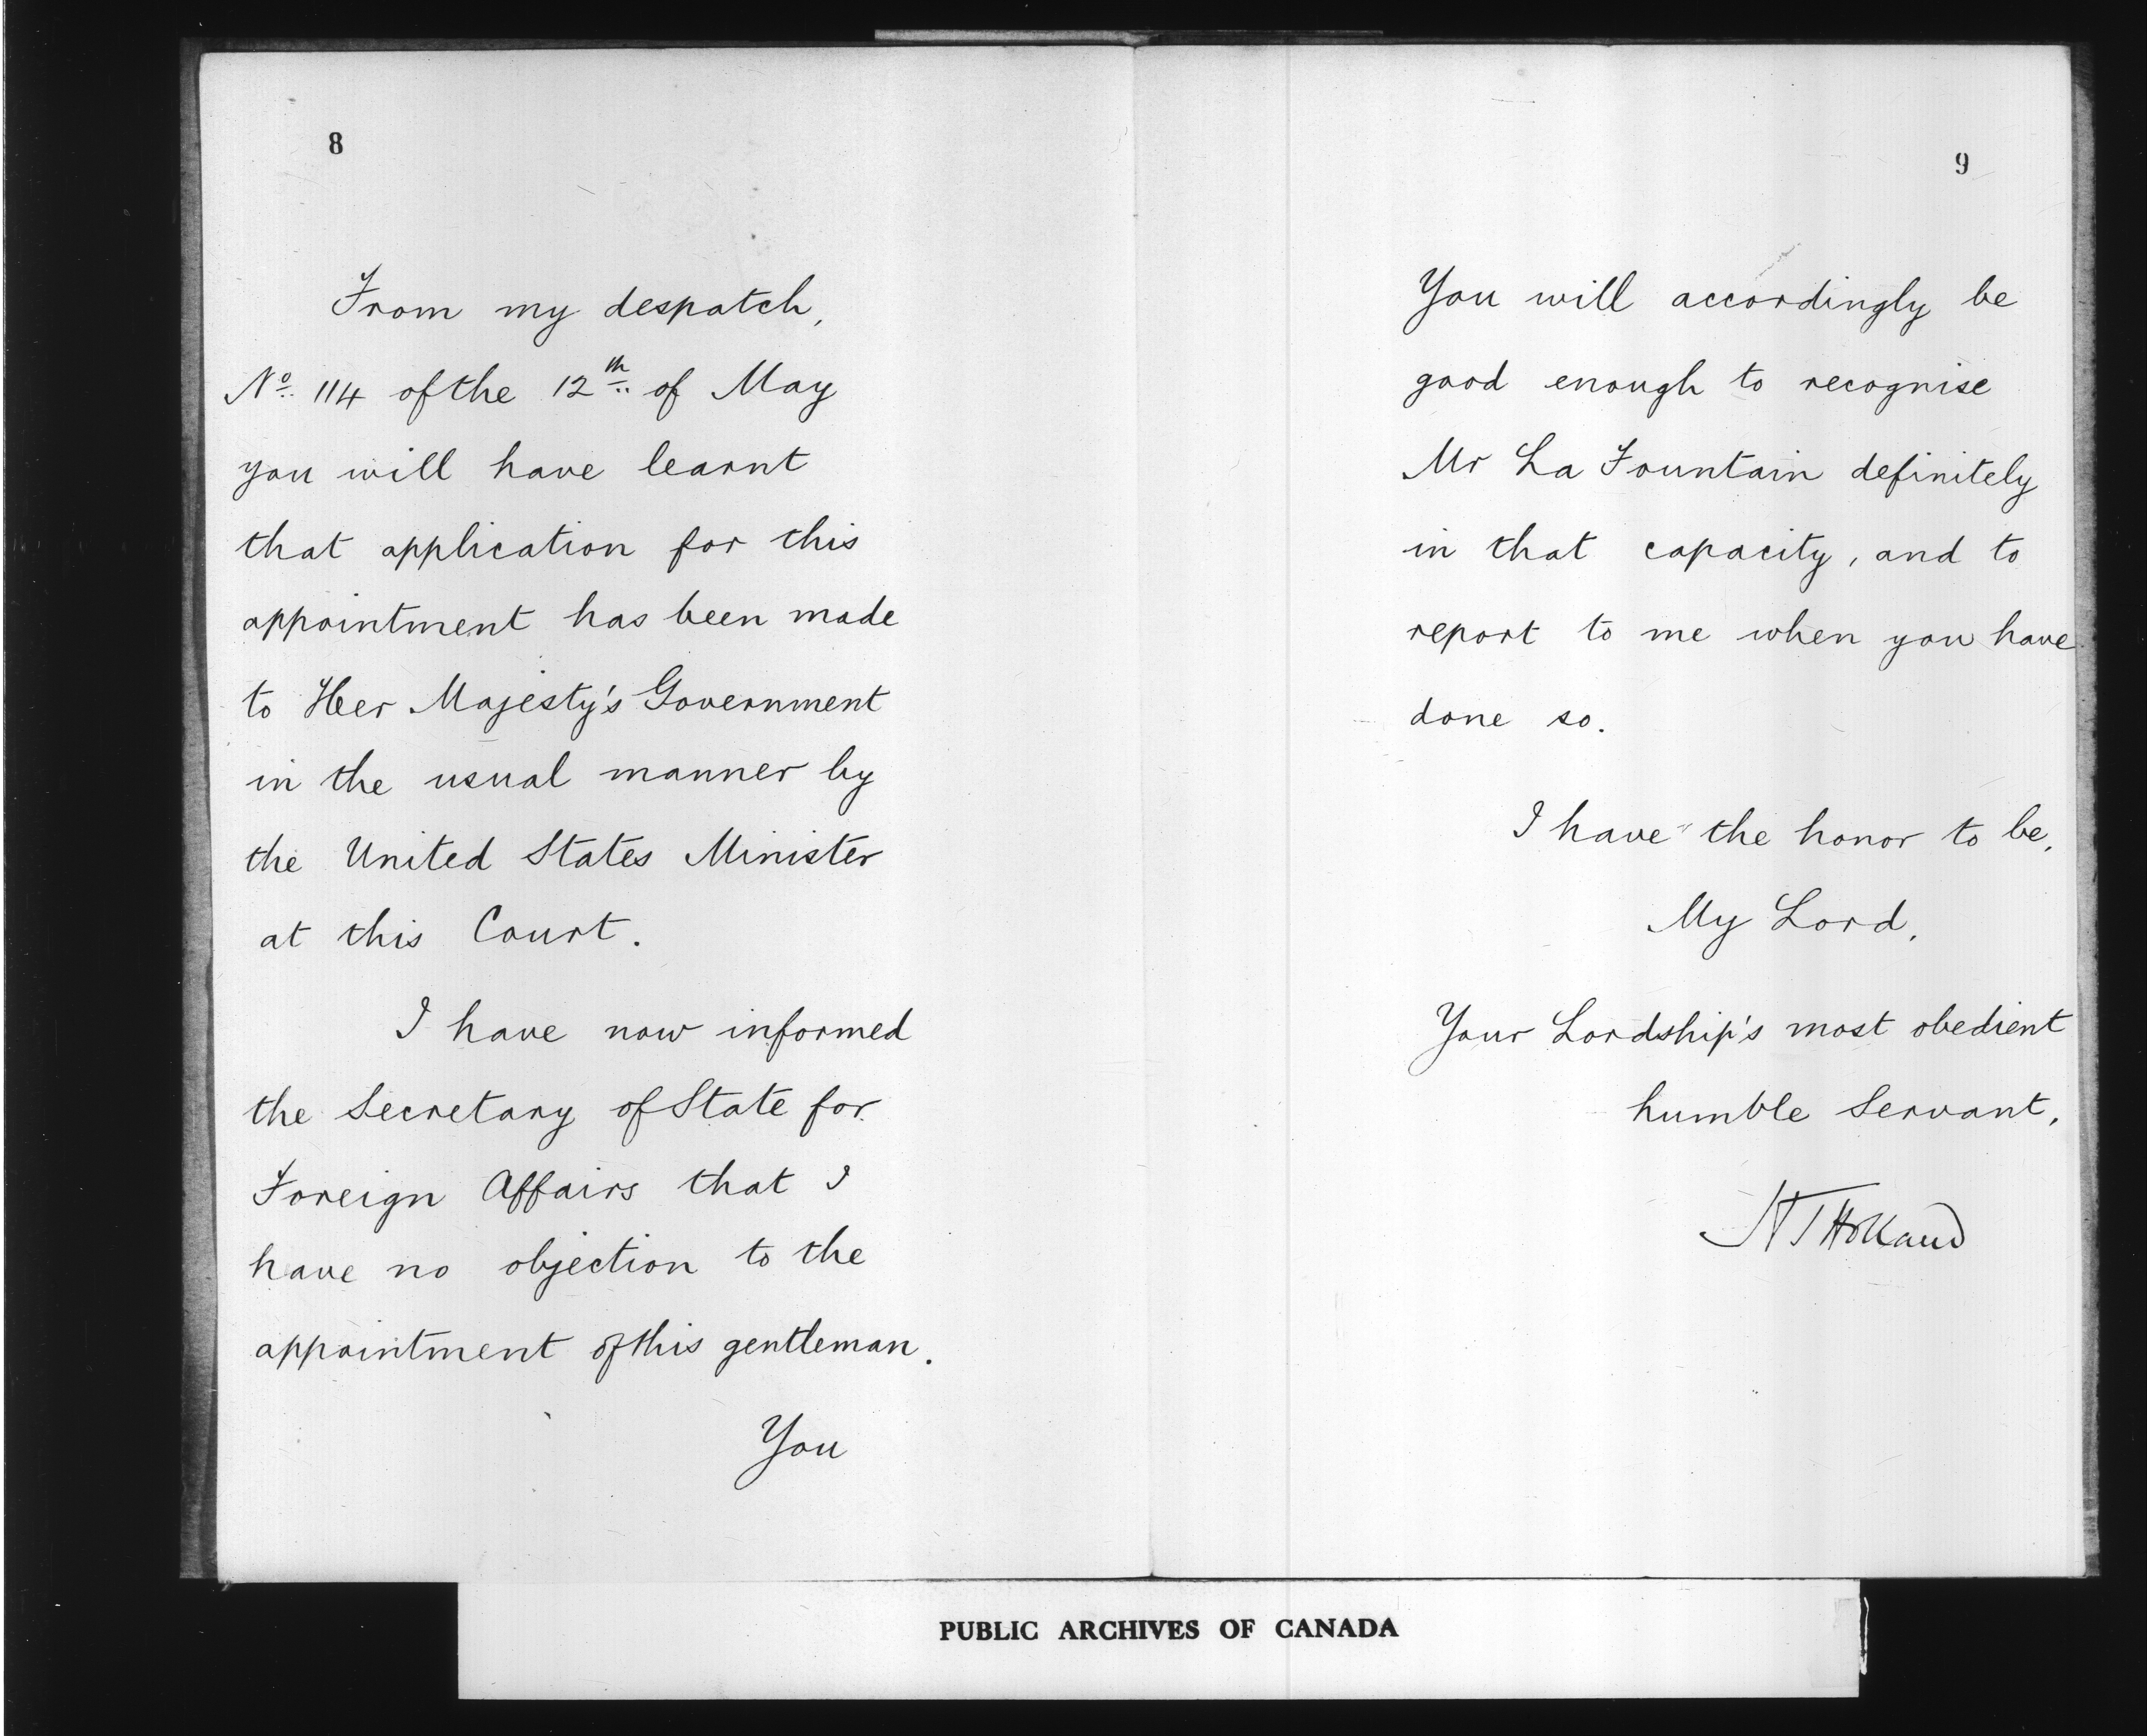 8
From my despatch,
No. 114 of the 12th of May
you will have learnt
that application for this
appointment has been made
to Her Majesty's Government
in the usual manner by
the United States Minister
at this Court.
I have now informed
the Secretary of State for
Foreign Affairs that I
have no objection to the
appointment of this gentleman.
You
9
You will accordingly be
good enough to recognise
Mr La Fountain definitely
in that capacity, and to
report to me when you have
done so.
I have the honor to be,
My Lord,
Your Lordship's most obedient
humble Servant,
H T Holland
PUBLIC ARCHIVES OF CANADA